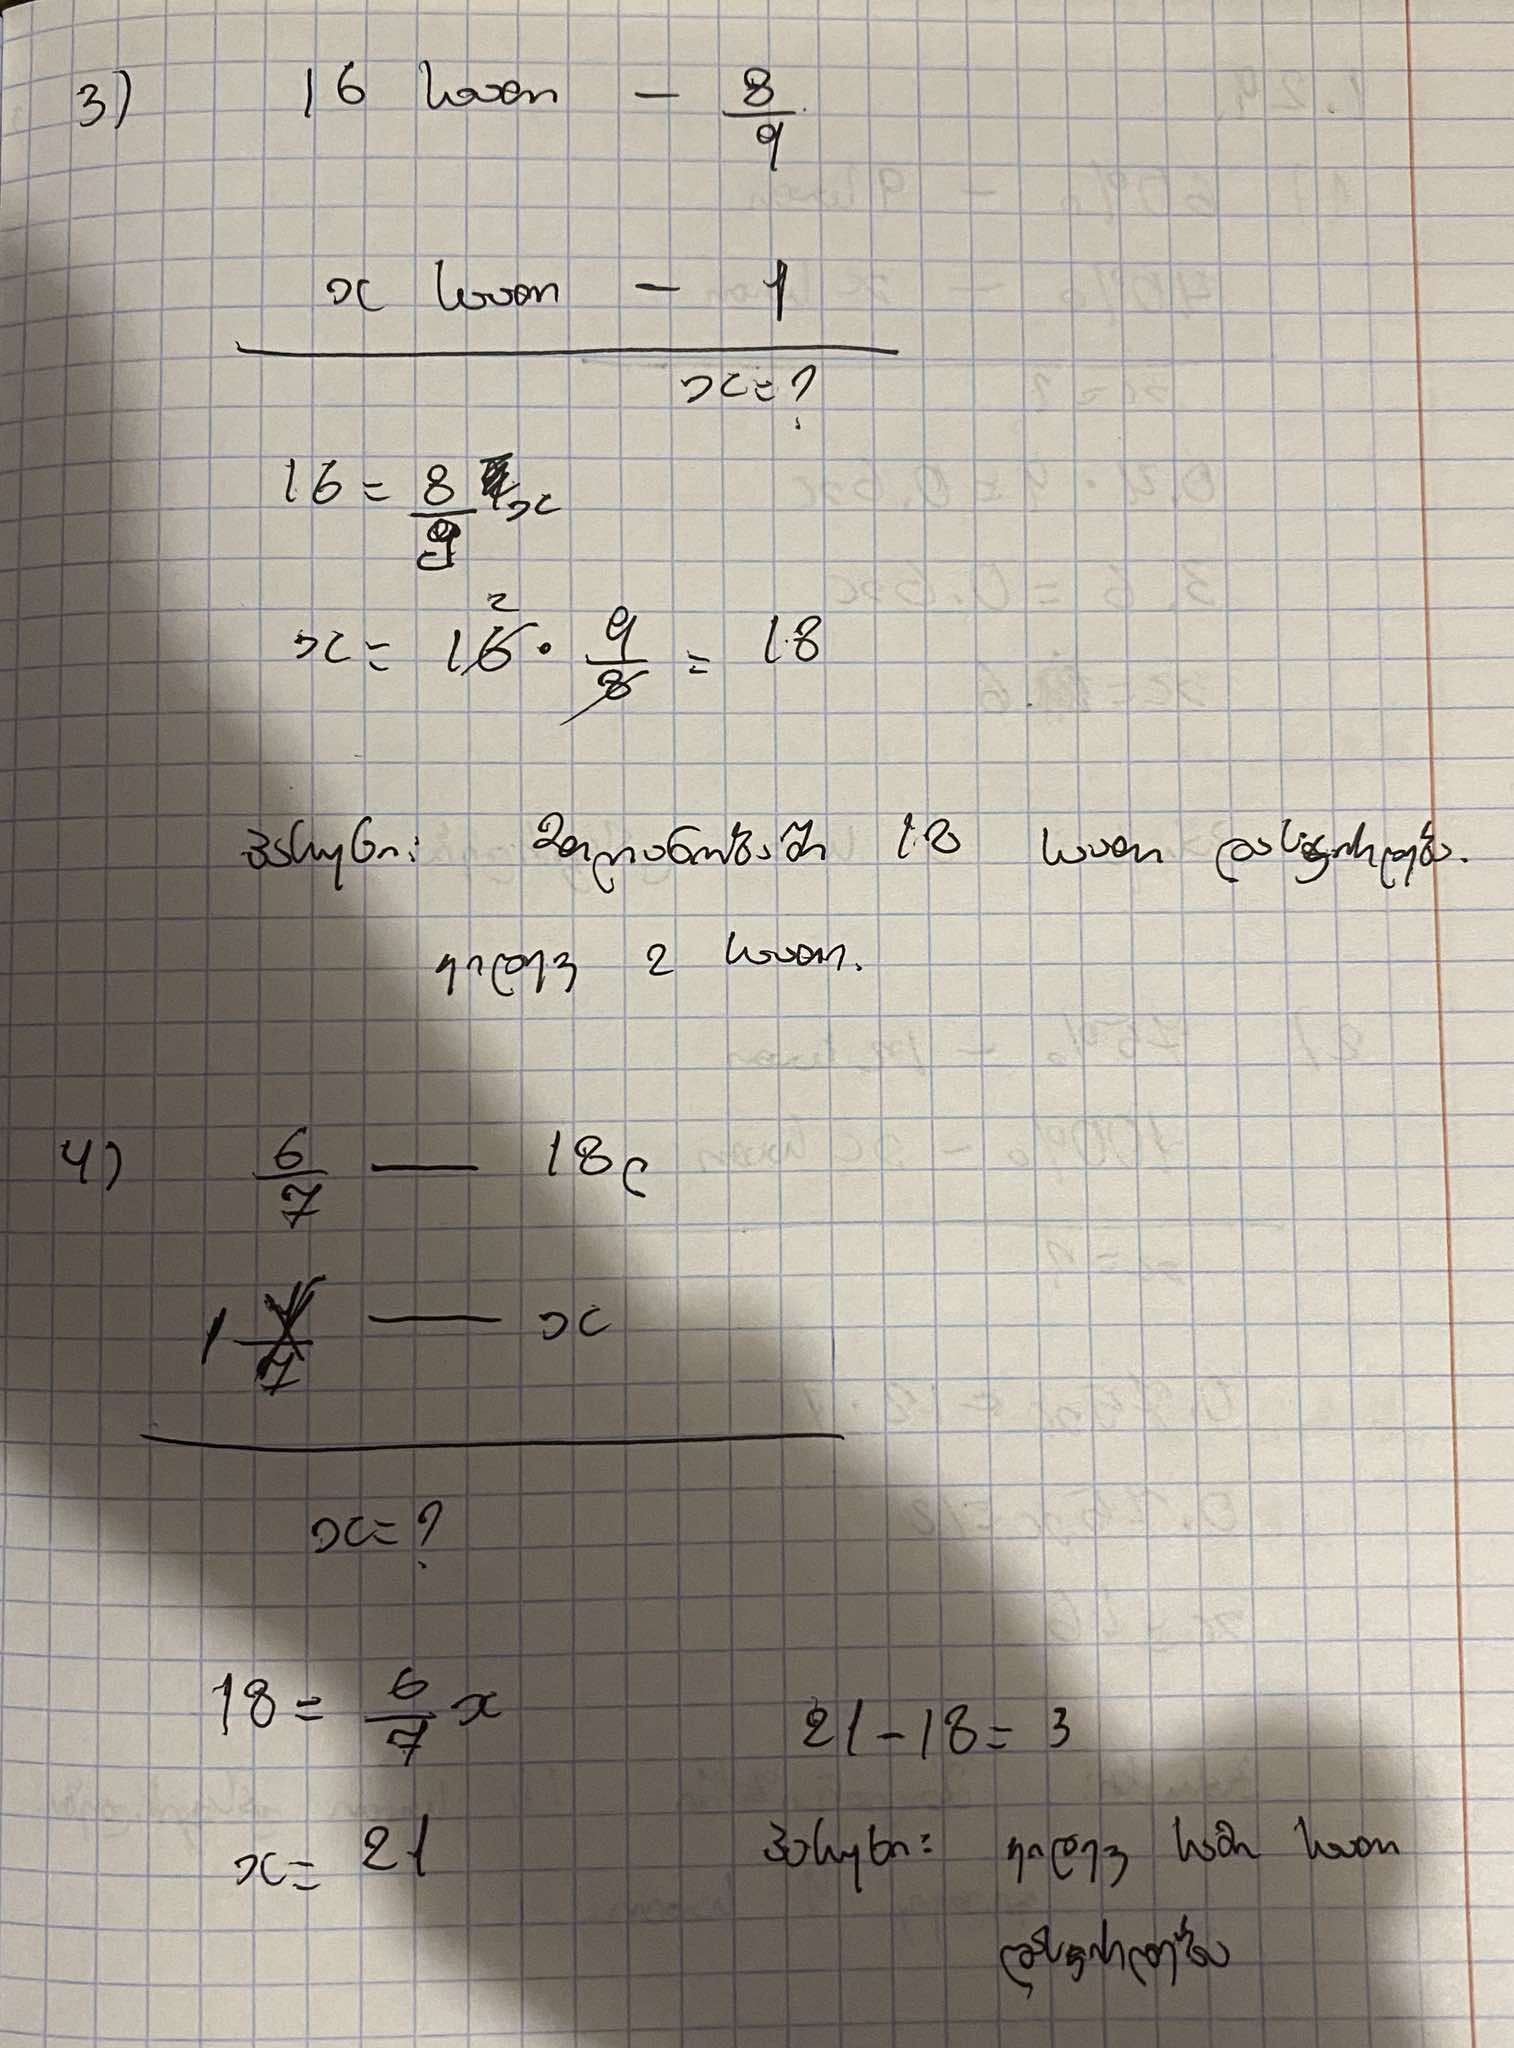 3) 16 საათი - 8/9
x საათი - 1
x=?
16 = 8/9 x
x = 16 · 9/8 = 18
2
პასუხი: მთლიანობაში 18 საათი დასჭირდება.
კიდევ 2 საათი.
4) 6/7 — 18
1 — x
x=?
18 = 6/7 x
x = 21
21-18=3
პასუხი: კიდევ სამი საათი
დასჭირდება